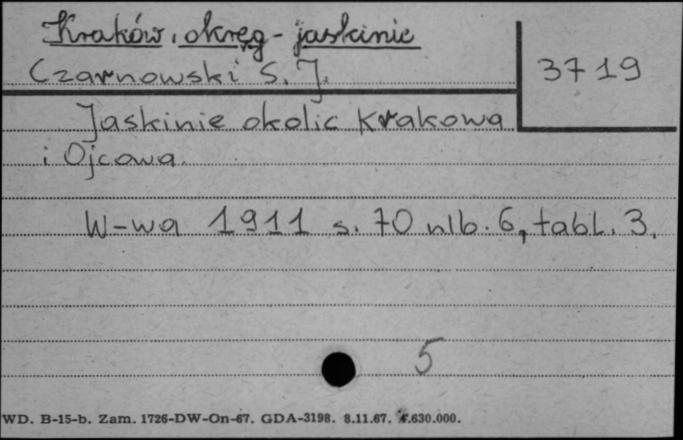 Kraków, okręg - jaskinie
Czarnowski S. J.
3719
Jaskinie okolic Krakowa
i Ojcowa.
W-wa 1911 s. 70 nlb. 6, tabl. 3.
5
WD. B-15-b. Zam. 1726-DW-On-67. GDA-3198. 8.11.67. 4.630.000.